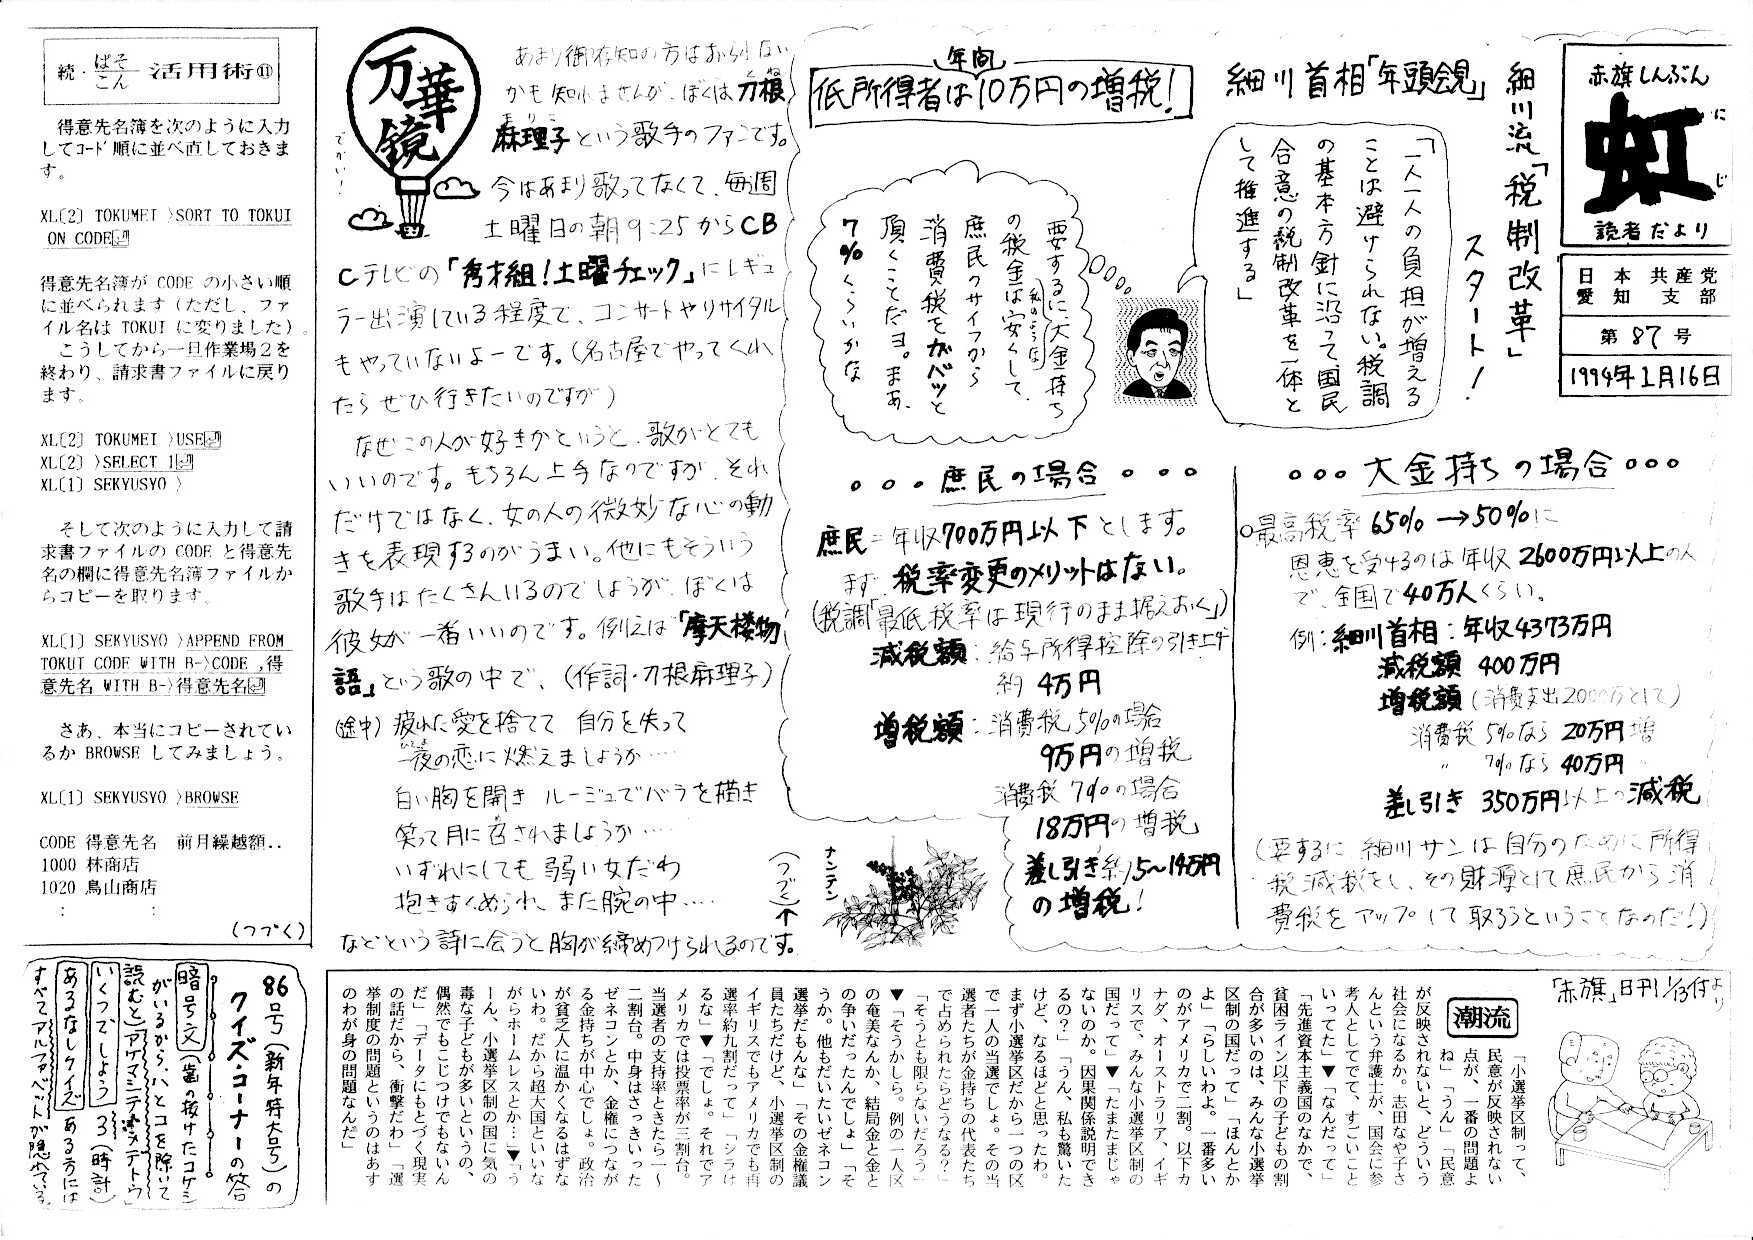 赤旗しんぶん
虹
にじ
読者だより
日本共産党
愛知支部
第87号
1994年1月16日
細川流「税制改革」
スタート!
細川首相「年頭会見」
「一人一人の負担が増える
ことは避けられない。税調
の基本方針に沿って国民
合意の税制改革を一体と
して推進する」
年間
低所得者は10万円の増税!
要するに、大金持ち
(私のような)
の税金は安くして、
庶民のサイフから
消費税をガバッと
頂くことだヨ。まあ、
7%くらいかな
・・・大金持ちの場合・・・
○最高税率65%→50%に
恩恵を受けるのは年収2600万円以上の人
で、全国で40万人くらい。
例:細川首相:年収4373万円
減税額 400万円
増税額(消費支出2000万として)
消費税5%なら 20万円増
〃 7%なら 40万円〃
差し引き 350万円以上の減税
(要するに 細川サンは自分のために所得
税減税をし、その財源として庶民から消
費税をアップして取ろうということなのだ!)
・・・庶民の場合・・・
庶民=年収700万円以下とします。
まず、税率変更のメリットはない。
(税調「最低税率は現行のまま据えおく」)
減税額:給与所得控除の引き上げ
約4万円
増税額:消費税5%の場合
9万円の増税
消費税7%の場合
18万円の増税
差し引き約5~14万円
の増税!
ナンテン
万華鏡
でかい!
あまり御存知の方はおられない
かも知れませんが、ぼくは刀根
麻理子という歌手のファンです。
まりこ
今はあまり歌ってなくて、毎週
土曜日の朝9:25からCB
Cテレビの「秀才組!土曜チェック」にレギュ
ラー出演している程度で、コンサートやリサイタル
もやっていないよーです。(名古屋でやってくれ
たらぜひ行きたいのですが)
なぜこの人が好きかというと、歌がとても
いいのです。もちろん上手なのですが、それ
だけではなく、女の人の微妙な心の動
きを表現するのがうまい。他にもそういう
歌手はたくさんいるのでしょうが、ぼくは
彼女が一番いいのです。例えば「摩天楼物
語」という歌の中で、(作詞・刀根麻理子)
(途中)疲れた愛を捨てて 自分を失って
一夜の恋に燃えましょうか……
いちよ
白い胸を開き ルージュでバラを描き
笑って月に召されましょうか……
いずれにしても弱い女だわ
抱きすくめられ、また腕の中……
などという詩に会うと胸が締めつけられるのです。
(つづく)↑
続・ぱそこん活用術⑪
得意先名簿を次のように入力
してコード順に並べ直しておきま
す。
XL[2] TOKUMEI >SORT TO TOKUI
ON CODE⏎
得意先名簿が CODE の小さい順
に並べられます(ただし、ファ
イル名は TOKUI に変りました)。
こうしてから一旦作業場2を
終わり、請求書ファイルに戻り
ます。
XL[2] TOKUMEI >USE⏎
XL[2] >SELECT 1⏎
XL[1] SEKYUSYO >
そして次のように入力して請
求書ファイルの CODE と得意先
名の欄に得意先名簿ファイルか
らコピーを取ります。
XL[1] SEKYUSYO >APPEND FROM
TOKUI CODE WITH B->CODE ,得
意先名 WITH B->得意先名⏎
さあ、本当にコピーされてい
るか BROWSE してみましょう。
XL[1] SEKYUSYO >BROWSE
CODE 得意先名 前月繰越額..
1000 林商店
1020 鳥山商店
: :
(つづく)
「赤旗」日刊1/13付より
潮流
「小選挙区制って、
民意が反映されない
点が、一番の問題よ
ね」「うん」「民意
が反映されないと、どういう
社会になるか。志田なや子さ
んという弁護士が、国会に参
考人としてでて、すごいこと
いってた」▼「なんだって」
「先進資本主義国のなかで、
貧困ライン以下の子どもの割
合が多いのは、みんな小選挙
区制の国だって」「ほんとか
よ」「らしいわよ。一番多い
のがアメリカで二割。以下カ
ナダ、オーストラリア、イギ
リスで、みんな小選挙区制の
国だって」▼「たまたまじゃ
ないのか。因果関係説明でき
るの?」「うん、私も驚いた
けど、なるほどと思ったわ。
まず小選挙区だから一つの区
で一人の当選でしょ。その当
選者たちが金持ちの代表たち
で占められたらどうなる?」
「そうとも限らないだろう」
▼「そうかしら。例の一人区
の奄美なんか、結局金と金と
の争いだったんでしょ」「そ
うか。他もだいたいゼネコン
選挙だもんな」「その金権議
員たちだけど、小選挙区制の
イギリスでもアメリカでも再
選率約九割だって」「シラけ
るな」▼「でしょ。それでア
メリカでは投票率が三割台。
当選者の支持率ときたら一~
二割台。中身はさっきいった
ゼネコンとか、金権につなが
る金持ちが中心でしょ。政治
が貧乏人に温かくなるはずな
いわ。だから超大国といいな
がらホームレスとか…▼「う
ーん、小選挙区制の国に気の
毒な子どもが多いというの、
偶然でもこじつけでもないん
だ」「データにもとづく現実
の話だから、衝撃だわ」「選
挙制度の問題というのはあす
のわが身の問題なんだ」
86号(新年特大号)の
クイズ・コーナーの答
暗号文(歯の抜けたコケシ
がいるから、ハとコを除いて
読むと)アケマシテオメデトウ
いくつでしょう 3(時計)
あるなしクイズ ある方には
すべてアルファベットが隠れている。